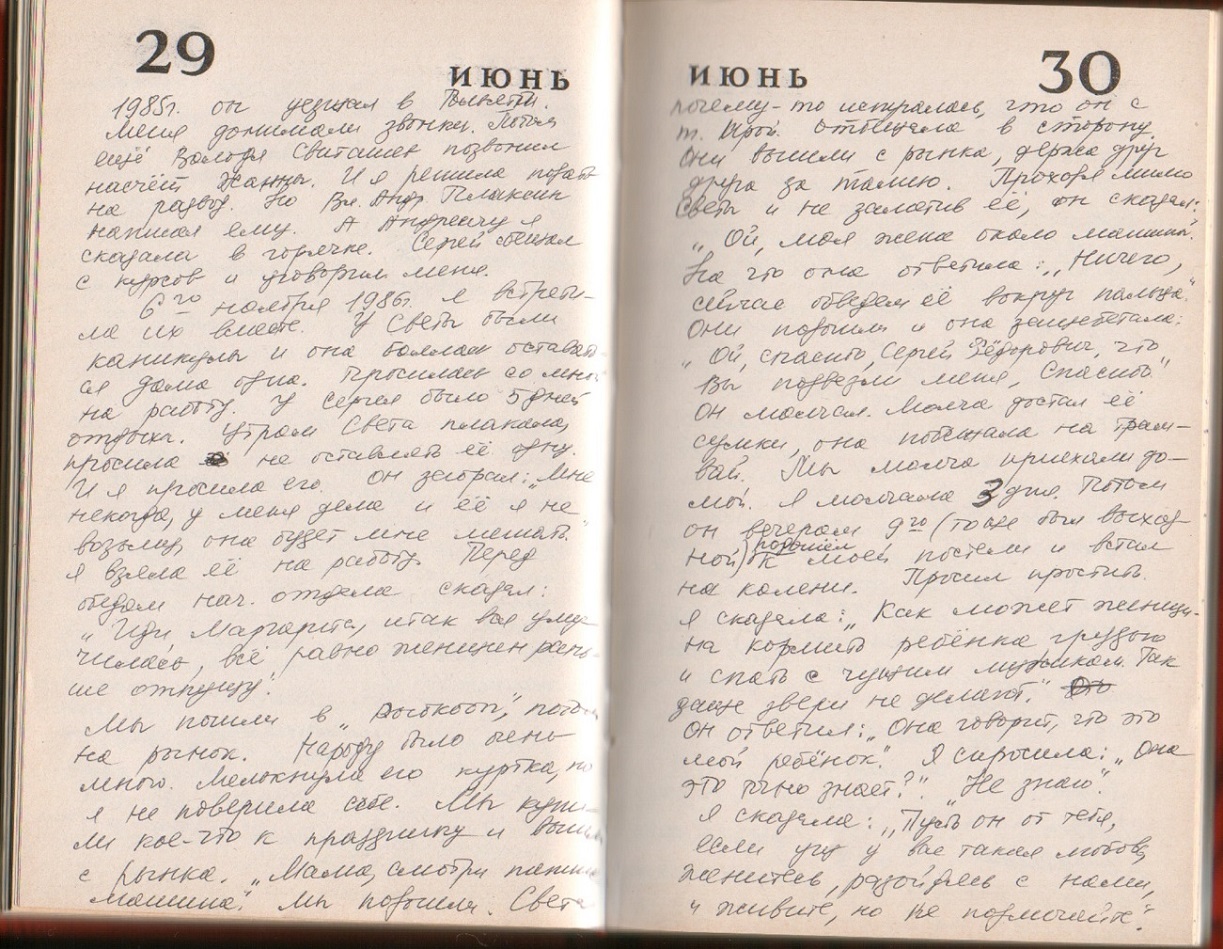 29
ИЮНЬ
1985г. он уезжал в Тольятти.
меня донимали звонки. Потом
ещё Володя Свиташев позвонил
насчёт Жанны. И я решила подать
на развод. Но Вл. Андр. Плаксин
написал ему. А Андреичу я
сказала в горячке. Сергей сбежал
с курсов и уговорил меня.
6го ноября 1986г. я встрети-
ла их вместе. У Светы были
каникулы и она боялась оставать-
ся дома одна. Просилась со мной
на работу. У Сергея было 5 дней
отдыха. Утром Света плакала,
просила не оставлять её одну.
И я просила его. он заорал: „Мне
некогда, у меня дела и её я не
возьму, она будет мне мешать"
я взяла её на работу. Перед
обедом нач. отдела сказал:
„Иди Маргарита, итак вся уму-
чилась, всё равно женщин рань-
ше отпущу".
Мы пошли в потом
на рынок. Народу было очень
много. Мелькнула его куртка, но
я не поверила себе. Мы купи-
ли кое-что к празднику и вышли
с рынка. „Мама, смотри папина
машина". Мы подошли. Света
ИЮНЬ
30
почему-то испугалась, что он с
т. Ирой. отбежала в сторону.
Они вышли с рынка, держа друг
друга за талию. Проходя мимо
Светы и не заметив её, он сказал:
„Ой, моя жена около машины".
На что она ответила: „Ничего,
сейчас обведём её вокруг пальца."
Они подошли и она защебетала:
„Ой, спасибо, Сергей Фёдорович, что
Вы подвезли меня, Спасибо"
Он молчал. Молча достал её
сумки, она побежала на трам-
вай. Мы молча приехали до-
мой. Я молчала 3 дня. Потом
он вечером 9го (тоже был выход-
ной) подошёл к моей постели и встал
на колени. Просил простить.
Я сказала: „Как может женщи-
на кормить ребёнка грудью
и спать с чужим мужиком. Так
даже звери не делают."
Он ответил: „Она говорит, что это
мой ребёнок". Я спросила: „Она
это точно знает?" „Не знаю".
Я сказала: „Пусть он от тебя,
если уж у вас такая любовь,
женитесь, разойдись с нами,
и живите, но не